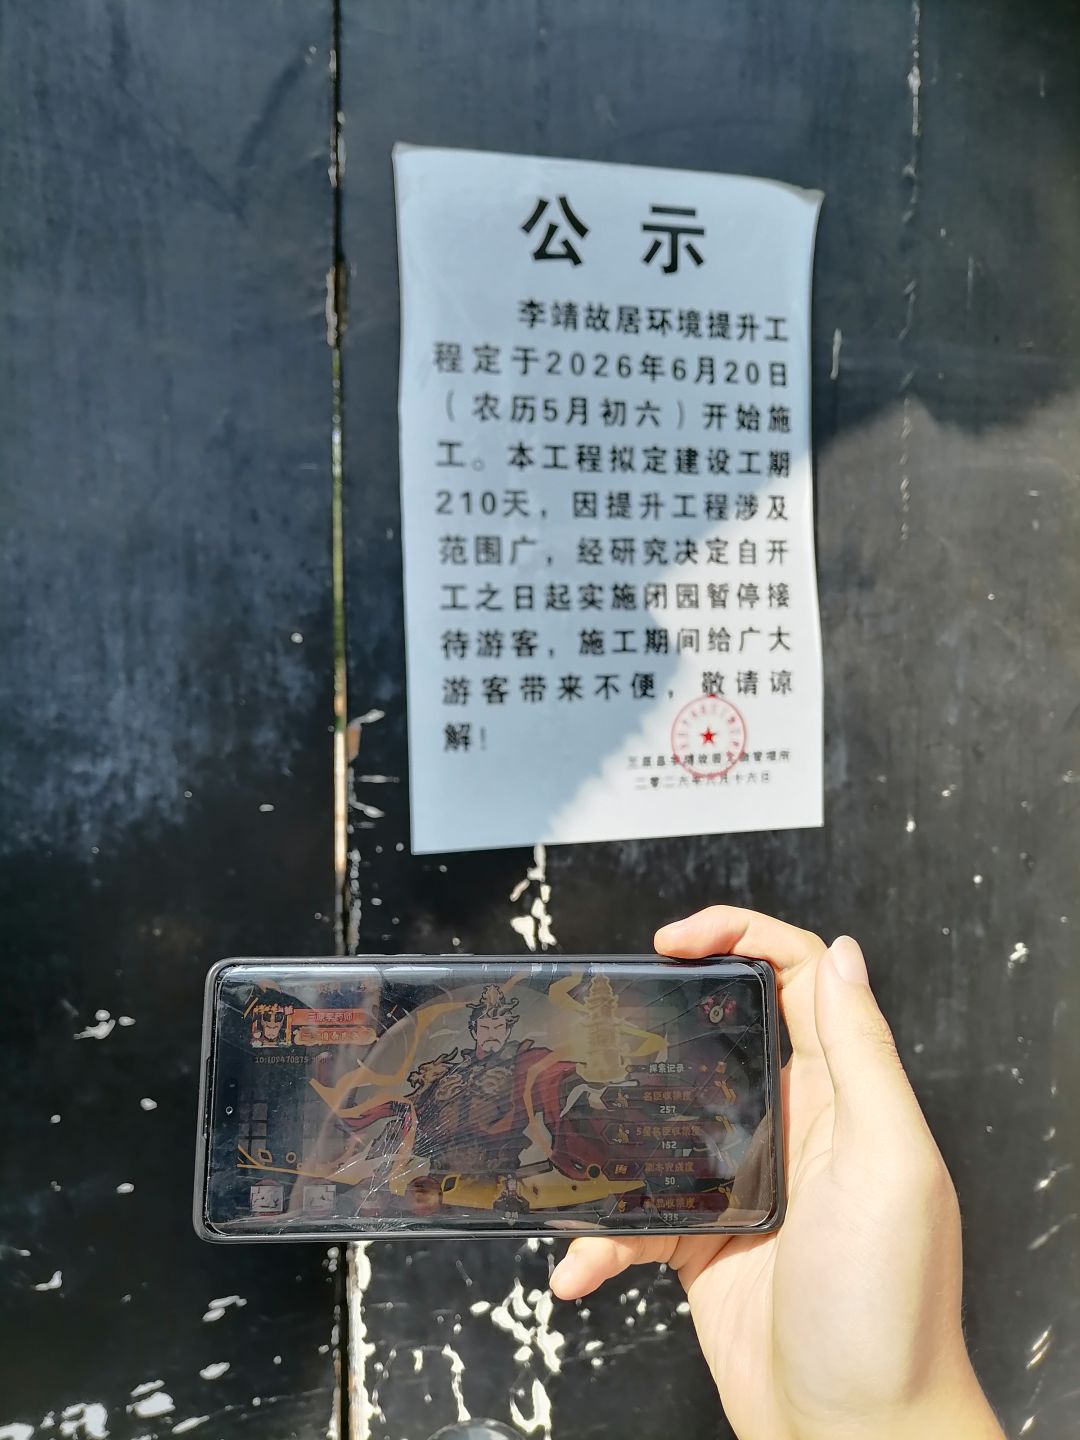 公 示
李靖故居环境提升工
程定于2026年6月20日
（农历5月初六）开始施
工。本工程拟定建设工期
210天，因提升工程涉及
范围广，经研究决定自开
工之日起实施闭园暂停接
待游客，施工期间给广大
游客带来不便，敬请谅
解！
二零二六年六月十六日
探索记录
名臣收集度
257
5星名臣收集度
152
副本完成度
50
335